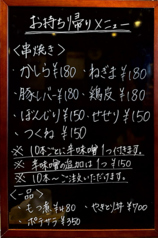 お持ち帰りメニュー
<串焼き>
・かしら¥180 ・ねぎま¥180
・豚レバー¥180 ・鶏皮¥180
・ぼんじり¥150 ・せせり¥150
・つくね¥150
※10本ごとに辛味噌1つ付きます。
※辛味噌の追加は1つ¥150
※10本〜ご注文いただけます。
<一品>
・もつ煮¥480 ・やきとり丼¥700
・ポテサラ¥350